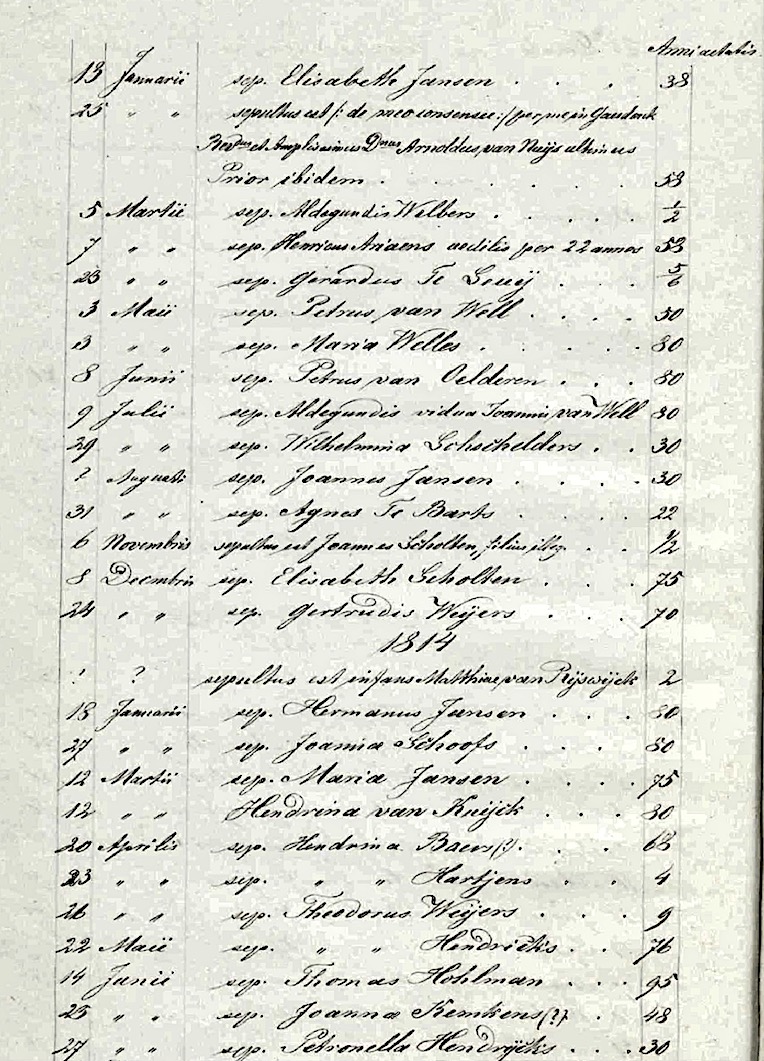 Anni aetatis
13 Januarii sep. Elisabeth Jansen . . . 38
25 " " sepultus est /: de meo consensu :/ per me in Gaesdonk
Revdus et Amplissimus Dnus Arnoldus van Nuijs ultimus
Prior ibidem . . . . . 58
5 Martii sep. Aldegundis Welbers . . . . 1/2
7 " " sep. Henricus Ariaens aedilis per 22 annos 53
23 " " sep. Gerardus Te Leuij . . . 5/6
3 Maii sep. Petrus van Well . . . . 50
13 " " sep. Maria Welles . . . . . 80
8 Junii sep. Petrus van Oelderen . . . 80
9 Julii sep. Aldegundis vidua Joannis van Well 80
29 " " sep. Wilhelmina Schschelders . . 30
? Augusti sep. Joannes Jansen . . . . 30
31 " " sep. Agnes Te Barts . . . . 22
6 Novembris sepultus est Joannes Scholten, filius illeg. . . 1/2
8 Decmbris sep. Elisabeth Scholten . . . 75
24 " " sep. Gertrudis Weijers . . . 70
1814
? ? sepultus est infans Matthiae van Rijswijck 2
18 Januarii sep. Hermanus Jansen . . . 80
27 " " sep. Joanna Schoofs . . . . 80
12 Martii sep. Maria Jansen . . . . 75
12 " " Hendrina van Kuijck . . . 30
20 Aprilis sep. Hendrina Baers (?) . . . 68
23 " " sep. " " Hartjens . . 4
26 " " sep. Theodorus Weijers . . . 9
22 Maii sep. " " Hendricks . . 76
14 Junii sep. Thomas Hohlman . . . 95
23 " " sep. Joanna Kemkens (?) . . 48
27 " " sep. Petronella Hendrijcks . . 30